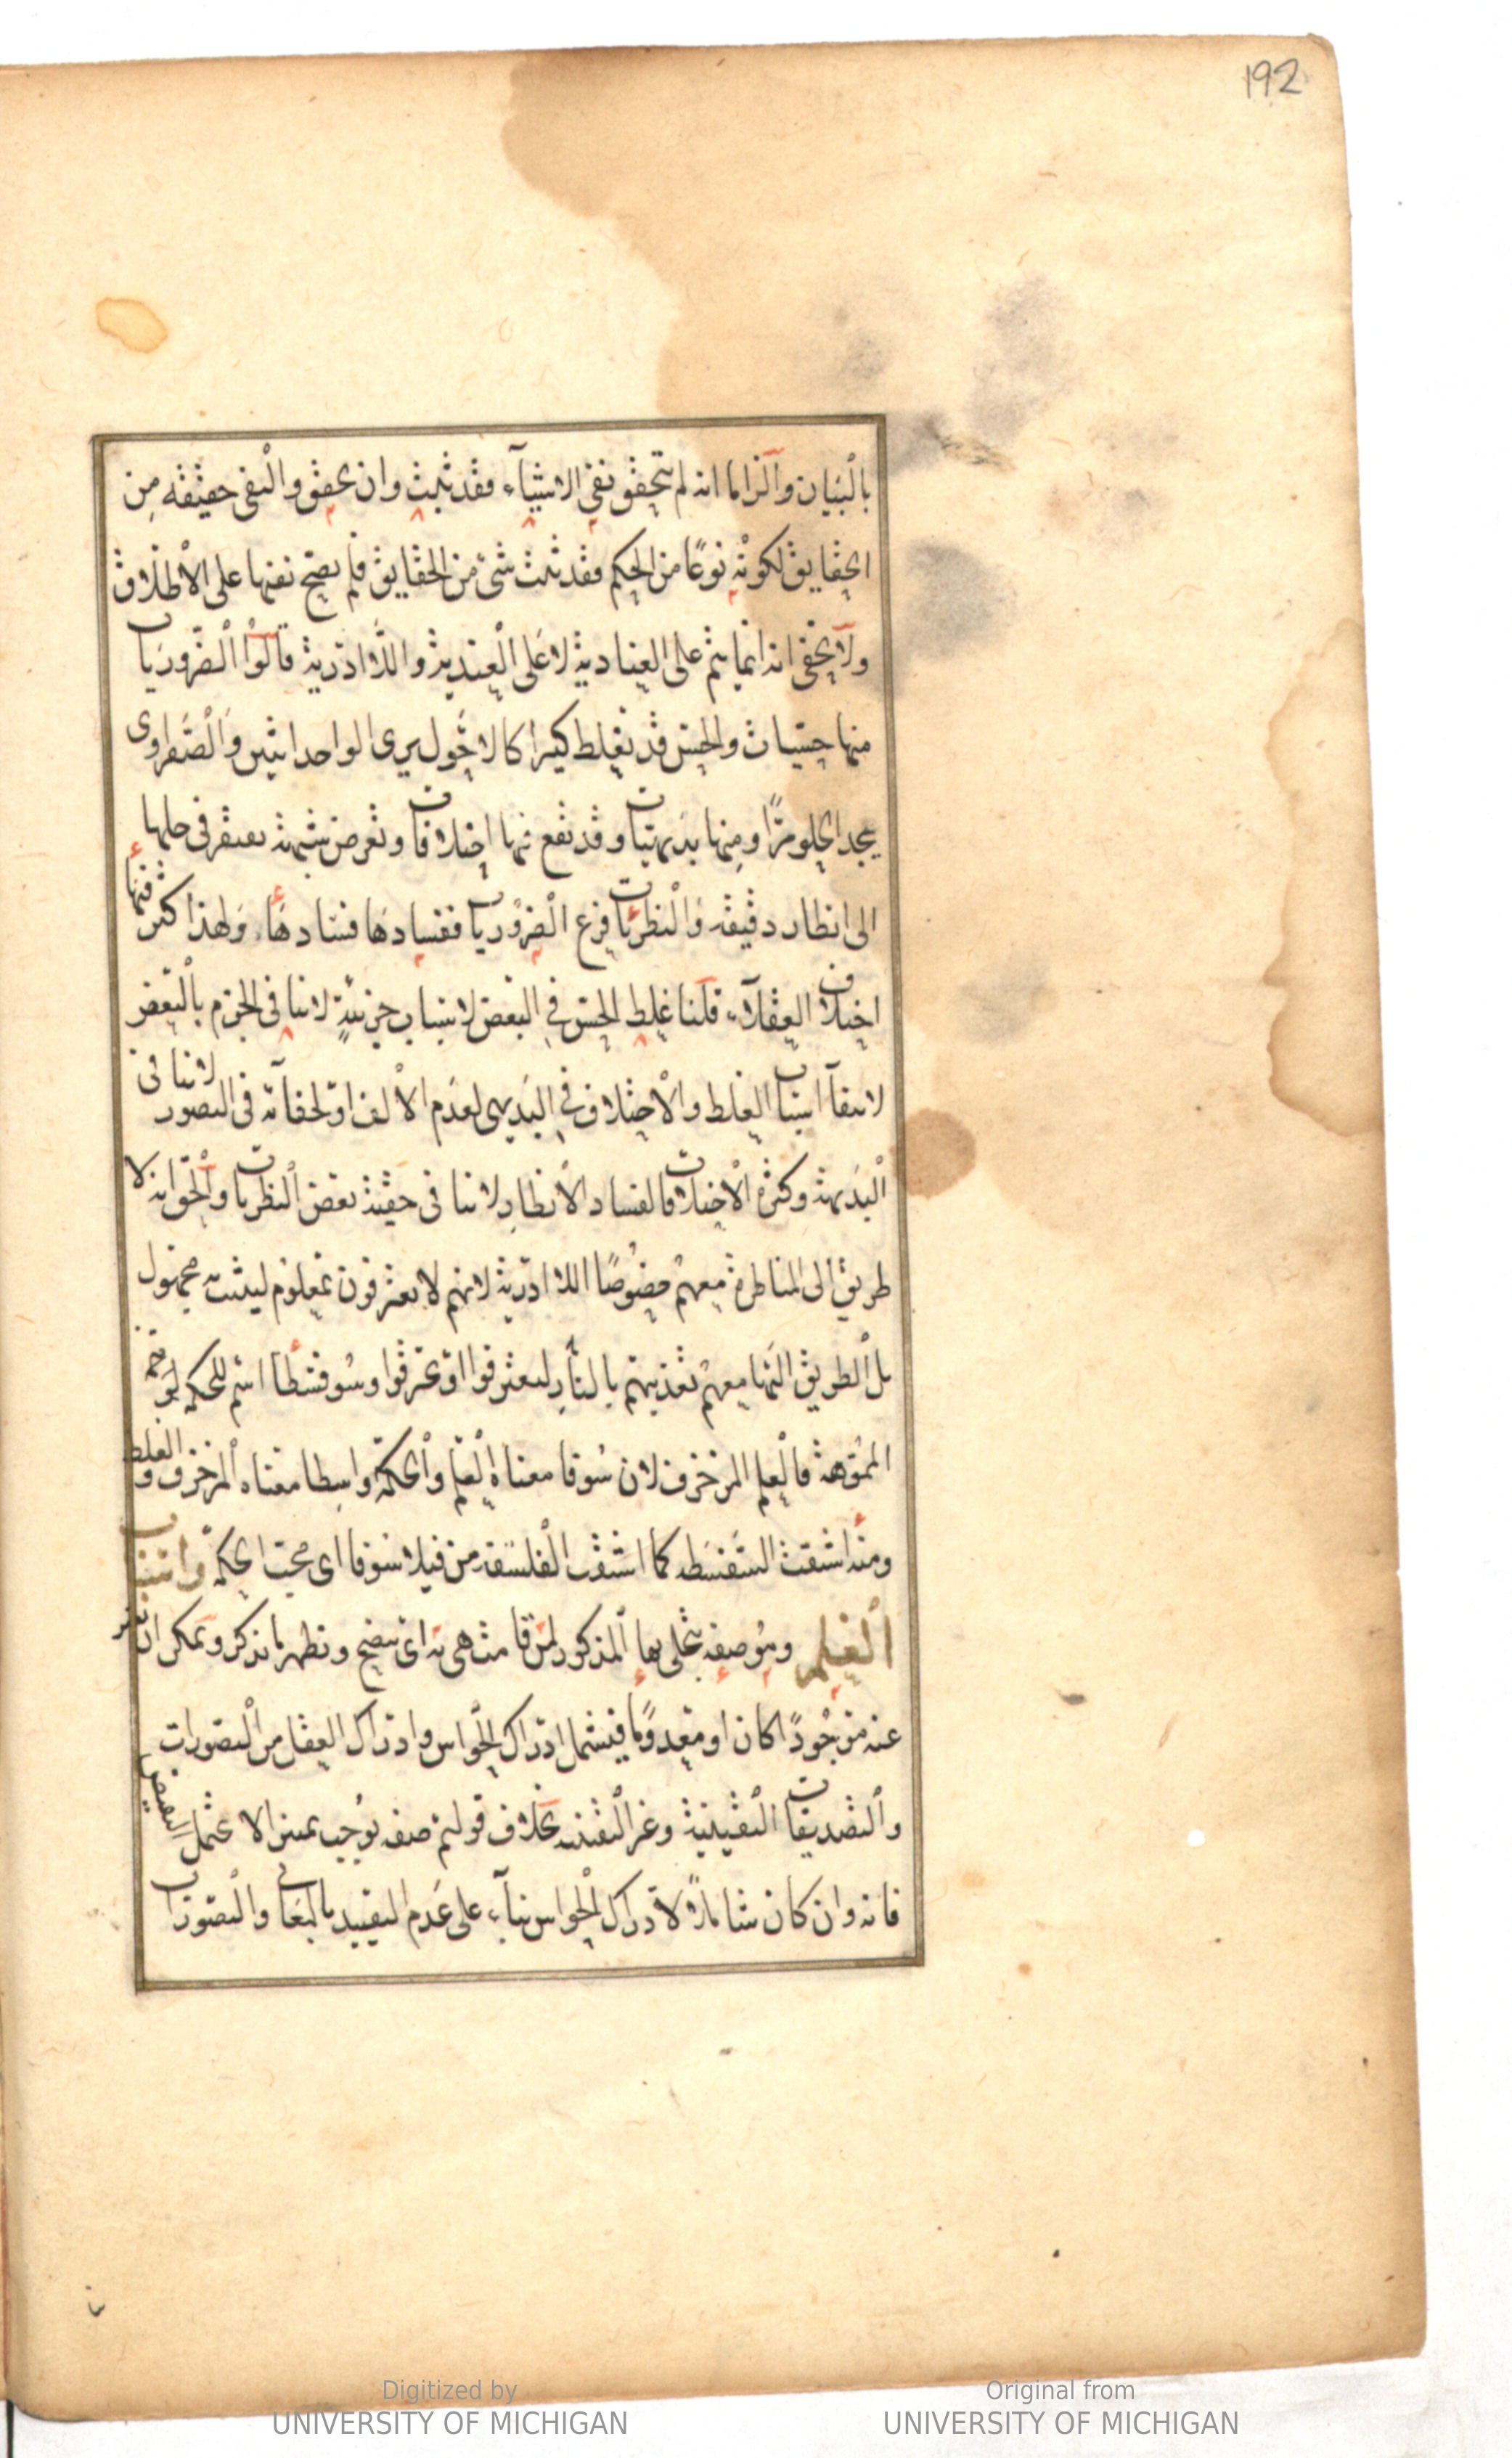 192
بالبيان والزاما انه لم يتحقق نفى الاشياء فقد ثبت وان تحقق والنفى حقيقه من
الحقايق لكونه نوعا من الحكم فقد ثبت شئ من الحقايق فلم يصح نفيها على الاطلاق
ولا يخفى انه انما يتم على العنادية لا على العندية واللا ادرية قالوا الضروريات
منها حسيات والحس قد يغلط كثيرا كالاحول يرى الواحد اثنين والصفراوى
يجد الحلو مرا ومنها بديهيات وقد تقع فيها اختلافات وتعرض شبهة يفتقر فى حلها
الى انظار دقيقه والنظريات فرع الضروريات ففسادها فسادها ولهذا كثر فيها
اختلاف العقلاء قلنا غلط الحس في البعض لاسباب جزئية لا ينافى الجزم بالبعض
لانتفاء اسباب الغلط والاختلاف في البديهى لعدم الالف او لخفائه فى التصور لا ينافى
البديهة وكثرة الاختلافات لفساد الانظار لا ينافى حقية بعض النظريات والحق انه لا
طريق الى المناظرة معهم خصوصا اللا ادرية لانهم لا يعترفون بمعلوم ليثبت به مجهول
بل الطريق انما معهم تعذيبهم بالنار ليعترفوا او يحترقوا وسوفسطا اسم للحكمه
المموهة فالعلم المزخرف لان سوفا معناه العلم والحكمة واسطا معناه المزخرف والغلط
ومنه اشتقت السفسطه كما اشتقت الفلسفة من فيلاسوفا اى محب الحكمه واسباب
العلم وهو صفه يتجلى بها المذكور لمن قامت هى به اى يتضح ويظهر ما يذكر ويمكن ان يعبر
عنه موجودا كان او معدوما فيشمل ادراك الحواس وادراك العقل من التصورات
والتصديقات اليقينية وغير اليقينيه بخلاف قولهم صفه توجب تميزا لا يحتمل النقيض
فانه وان كان شاملا لادراك الحواس بناء على عدم التقييد بالمعانى والتصورات
Digitized by
UNIVERSITY OF MICHIGAN
Original from
UNIVERSITY OF MICHIGAN